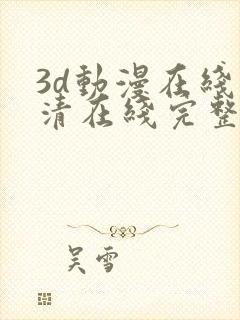 3d動漫在綫
清在綫完整
吴雪